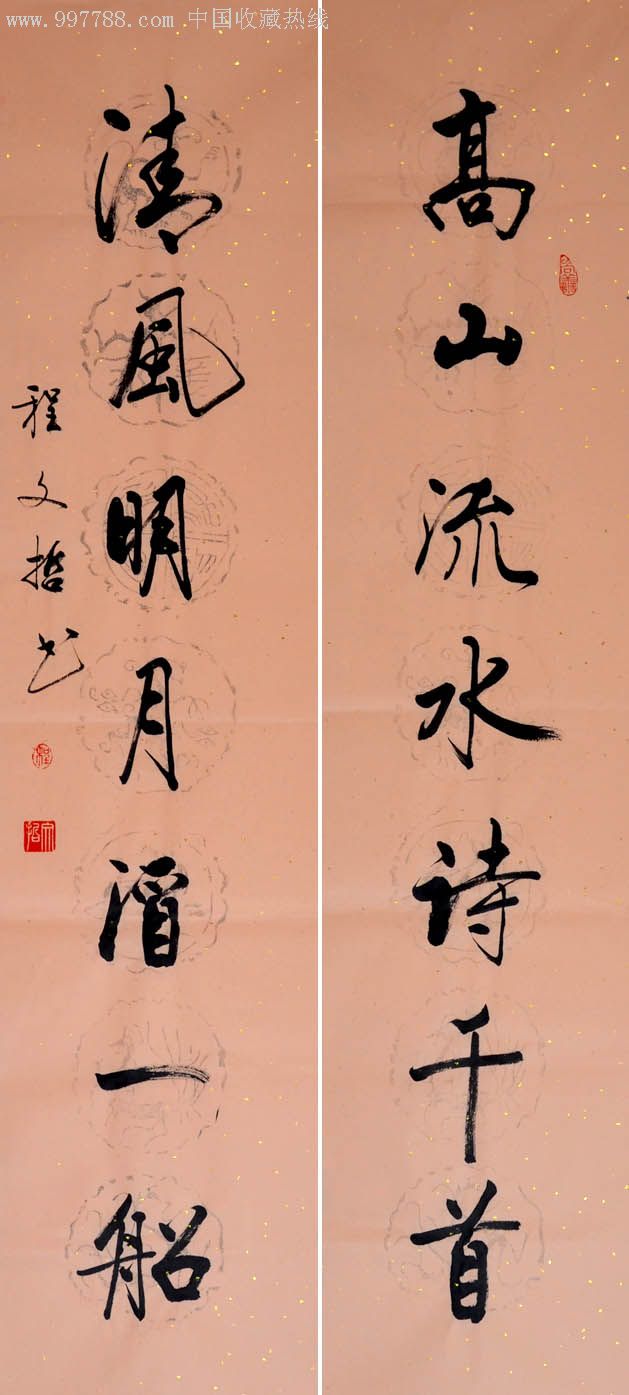 www.997788.com 中国收藏热线
高山流水诗千首
清風明月酒一船
程文哲书